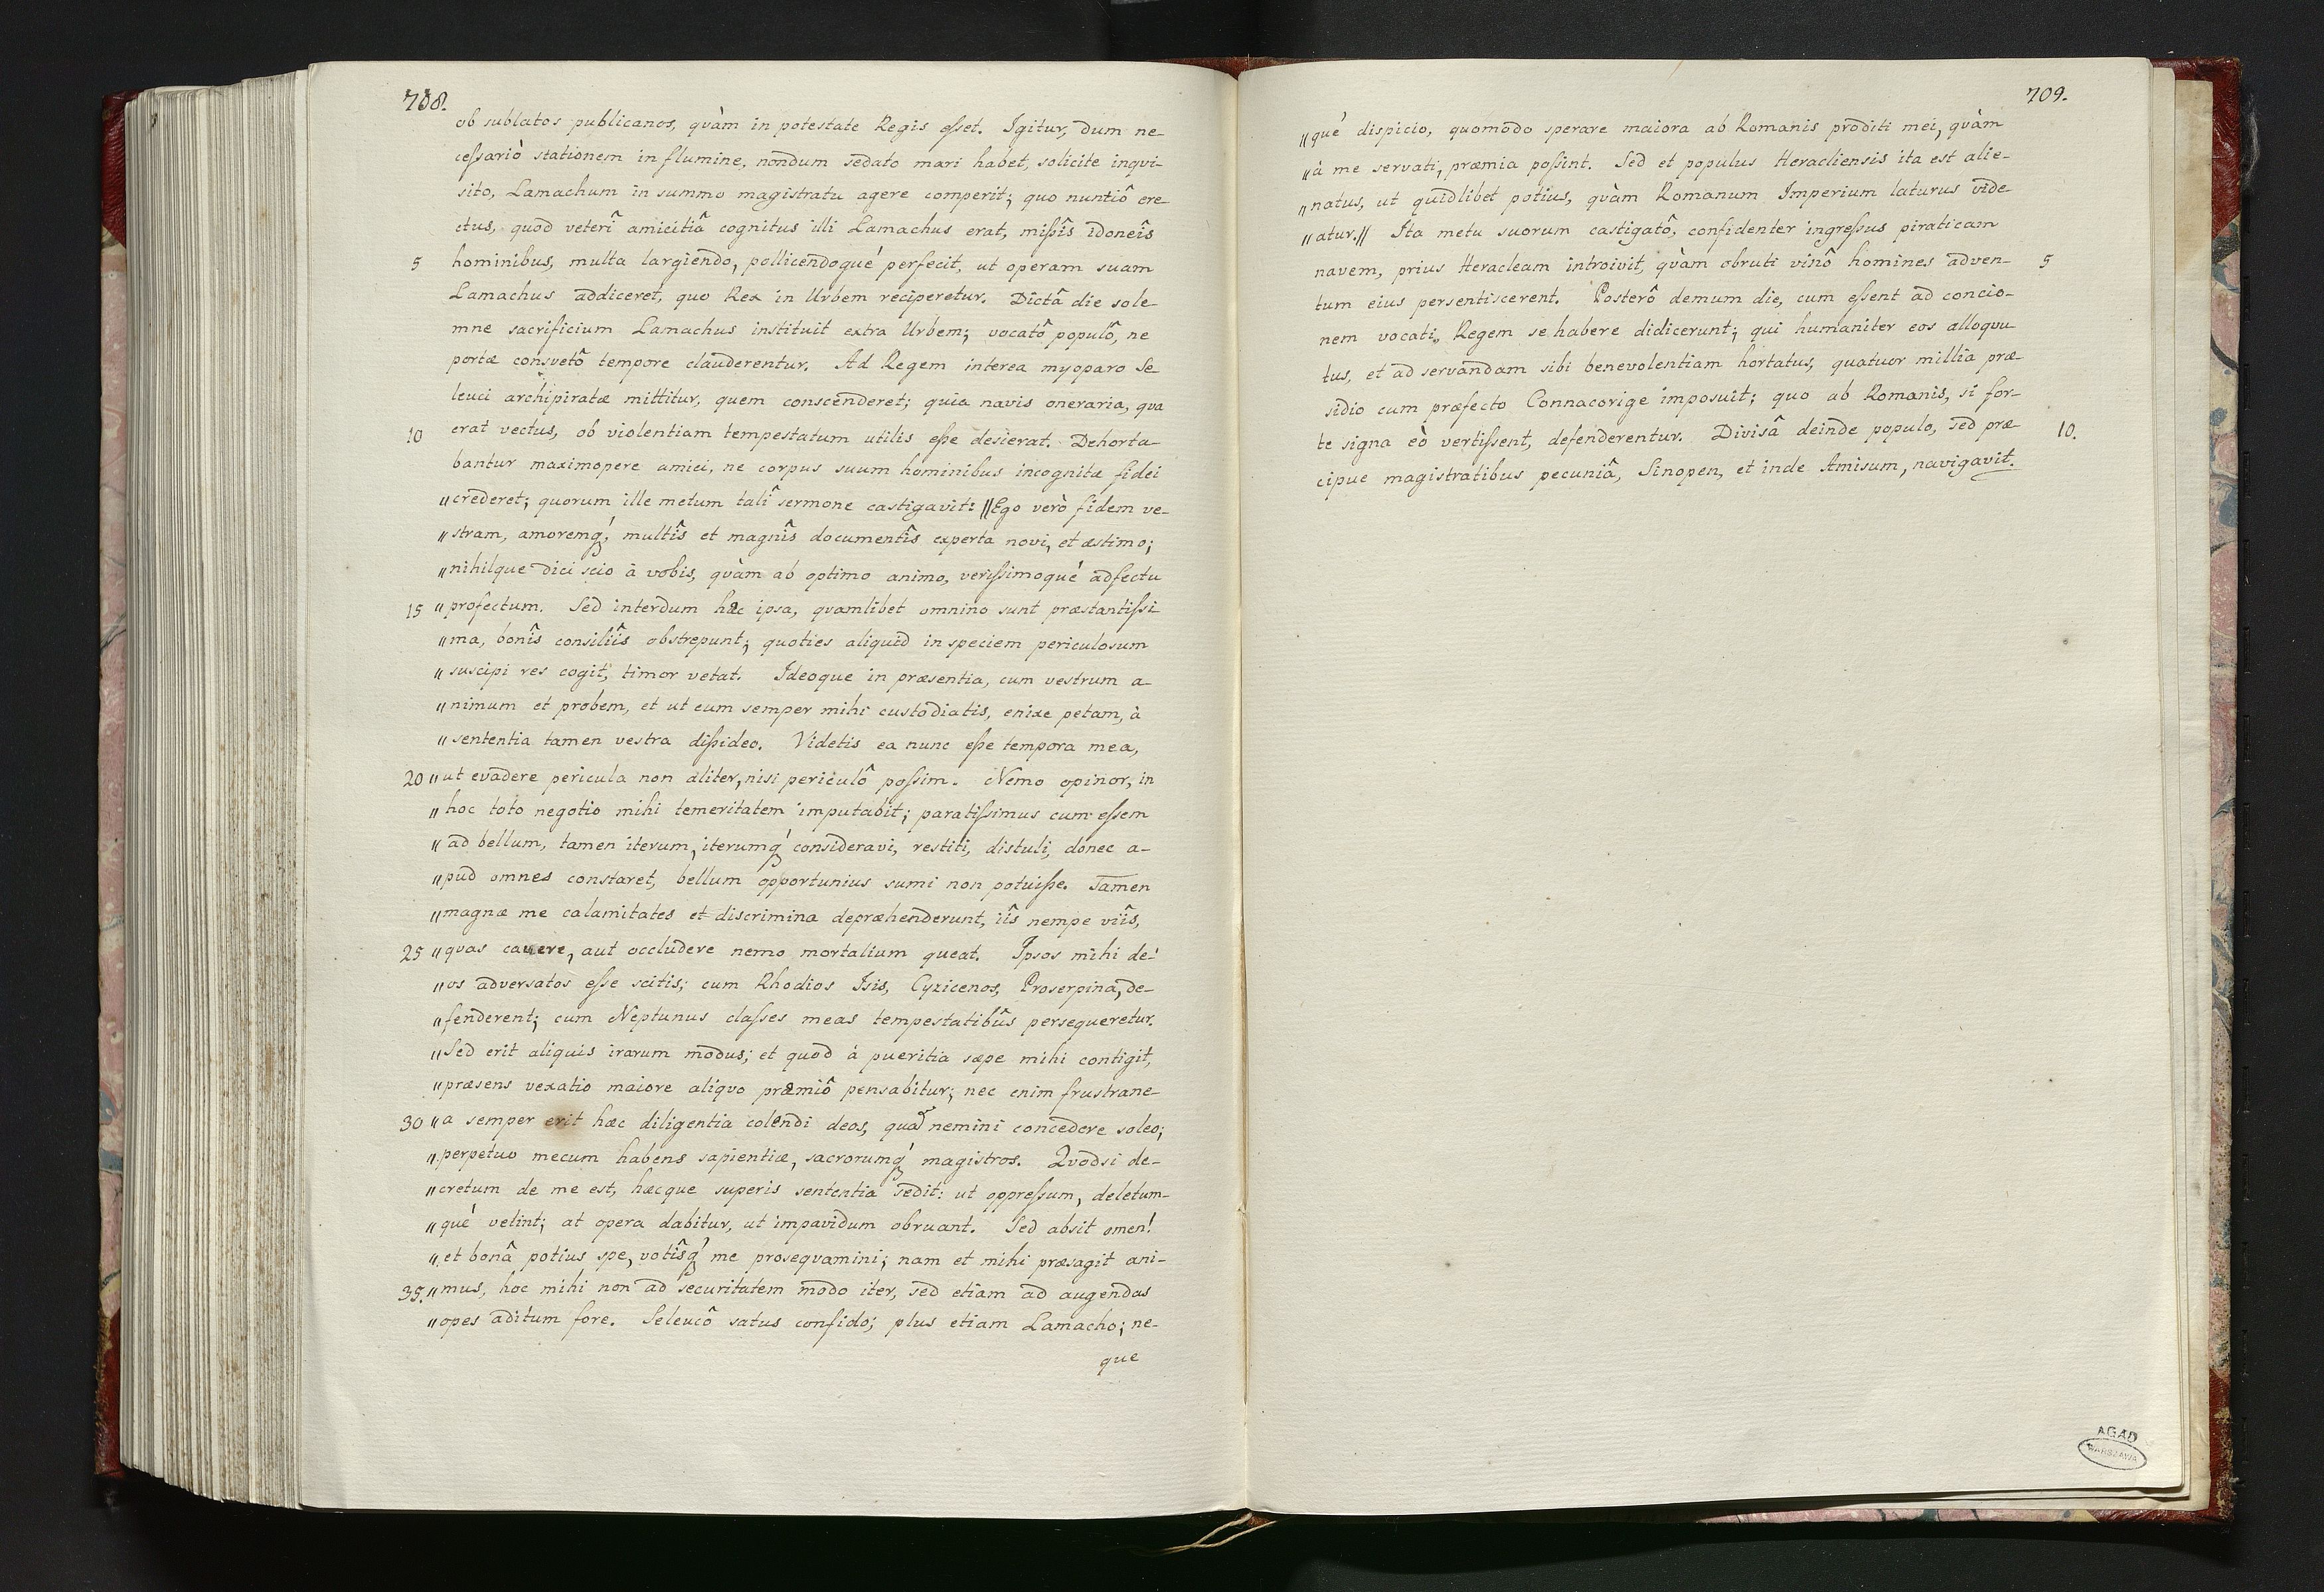 708.
ob sublatos publicanos, qvàm in potestate Regis eſset. Igitur, dum ne-
ceſsariò stationem in flumine, nondum sedato mari habet, solicite inqvi-
sito, Lamachum in summo magistratu agere comperit; quo nuntiô ere-
ctus, quod veterî amicitiâ cognitus illi Lamachus erat, miſsîs idoneîs
5 hominibus, multa largiendo, pollicendoqué perfecit, ut operam suam
Lamachus addiceret, quo Rex in Urbem reciperetur. Dictâ die sole-
mne sacrificium Lamachus instituit extra Urbem; vocatô populô, ne
portæ consvetô tempore clauderentur. Ad Regem interea myoparo Se-
leuci archipiratæ mittitur, quem conscenderet; quia navis oneraria, qva
10 erat vectus, ob violentiam tempestatum utilis eſse desierat. Dehorta-
bantur maximopere amici, ne corpus suum hominibus incognitæ fidei
"crederet; quorum ille metum talî sermone castigavit: "Ego verò fidem ve-
"stram, amoremq́, multîs et magnîs documentîs experta novi, et æstimo;
"nihilque dici scio à vobis, qvàm ab optimo animo, veriſsimoqué adfectu
15 "profectum. Sed interdum hæc ipsa, qvamlibet omnino sunt præstantiſsi-
"ma, bonîs consiliîs obstrepunt; quoties aliquid in speciem periculosum
"suscipi res cogit, timor vetat. Ideoque in præsentia, cum vestrum a-
"nimum et probem, et ut eum semper mihi custodiatis, enixe petam, à
"sententia tamen vestra diſsideo. Videtis ea nunc eſse tempora mea,
20 "ut evadere pericula non aliter, nisi periculô poſsim. Nemo opinor, in
"hoc toto negotio mihi temeritatem imputabit; paratiſsimus cum eſsem
"ad bellum, tamen iterum, iterumq́ consideravi, restiti, distuli, donec a-
"pud omnes constaret, bellum opportunius sumi non potuiſse. Tamen
"magnæ me calamitates et discrimina depræhenderunt, iîs nempe viîs,
25 "qvas cavere, aut occludere nemo mortalium queat. Ipsos mihi de-
"os adversatos eſse scitis; cum Rhodios Isis, Cyzicenos, Proserpina, de-
"fenderent; cum Neptunus claſses meas tempestatibûs persequeretur.
"Sed erit aliquis irarum modus; et quod à pueritia sæpe mihi contigit,
"præsens vexatio maiore aliqvo præmiô pensabitur; nec enim frustrane-
30 "a semper erit hæc diligentia colendi deos, quâ nemini concedere soleo;
"perpetuo mecum habens sapientiæ, sacrorumq́ magistros. Qvodsi de-
"cretum de me est, hæcque superis sententia sedit: ut oppreſsum, deletum-
"qué velint; at opera dabitur, ut impavidum obruant. Sed absit omen!
"et bonâ potius spe, votîsq́ me prosequamini; nam et mihi præsagit ani-
35. "mus, hoc mihi non ad securitatem modo iter, sed etiam ad augendas
"opes aditum fore. Seleucô satus confido; plus etiam Lamacho; ne-
que
709.
"qué dispicio, quomodo sperare maiora ab Romanis proditi mei, qvàm
"à me servati, præmia poſsint. Sed et populus Heracliensis ita est alie-
"natus, ut quidlibet potius, qvàm Romanum Imperium laturus vide
"atur." Ita metu suorum castigatô, confidenter ingreſsus piraticam
navem, prius Heracleam introivit, qvàm obruti vinô homines adven- 5
tum eius persentiscerent. Posterô demum die, cum eſsent ad concio-
nem vocati, Regem se habere didicerunt; qui humaniter eos alloqvu
tus, et ad servandam sibi benevolentiam hortatus, quatuor millia præ-
sidio cum præfecto Connacorige imposuit; quo ab Romanis, si for-
te signa eò vertiſsent, defenderentur. Divisâ deinde populo, sed præ- 10.
cipue magistratibus pecuniâ, Sinopen, et inde Amisum, navigavit.
AGAD
WARSZAWA